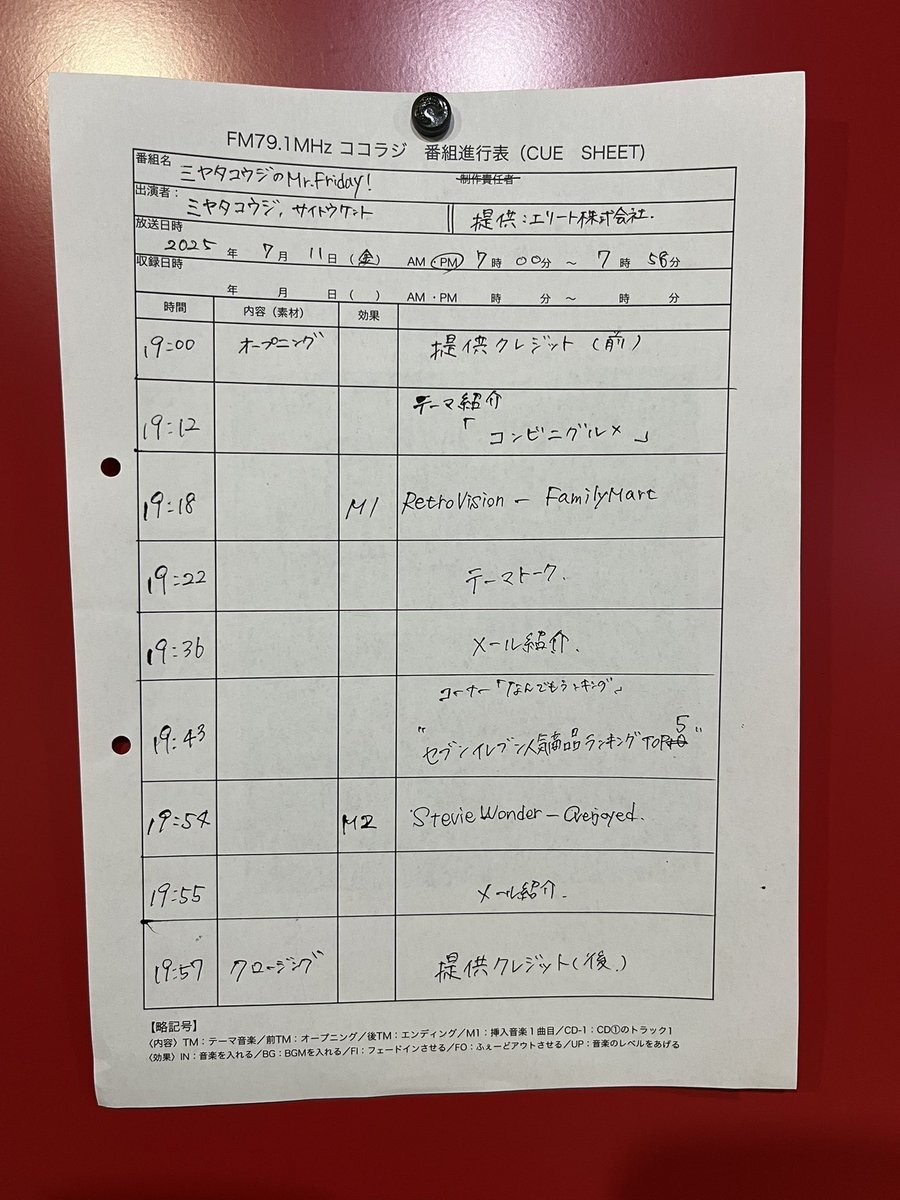 FM79.1MHz ココラジ 番組進行表(CUE SHEET)
番組名 ミヤタコウジのMr.Friday! 制作責任者
出演者: ミヤタコウジ, サイトウケント 提供:エリート株式会社.
放送日時 2025年 7月 11日(金) AM・PM 7時 00分 ~ 7時 58分
収録日時 年 月 日( ) AM・PM 時 分 ~ 時 分
時間 内容(素材) 効果
19:00 オープニング 提供クレジット(前)
19:12 テーマ紹介
「コンビニグルメ」
19:18 M1 RetroVision - FamilyMart
19:22 テーマトーク.
19:36 メール紹介.
19:43 コーナー「なんでもランキング」
"セブンイレブン人気商品ランキングTOP5"
19:54 M2 Stevie Wonder -
19:55 メール紹介.
19:57 クロージング 提供クレジット(後)
【略記号】
〈内容〉TM:テーマ音楽/前TM:オープニング/後TM:エンディング/M1:挿入音楽1曲目/CD-1:CD①のトラック1
〈効果〉IN:音楽を入れる/BG:BGMを入れる/FI:フェードインさせる/FO:ふぇーどアウトさせる/UP:音楽のレベルをあげる